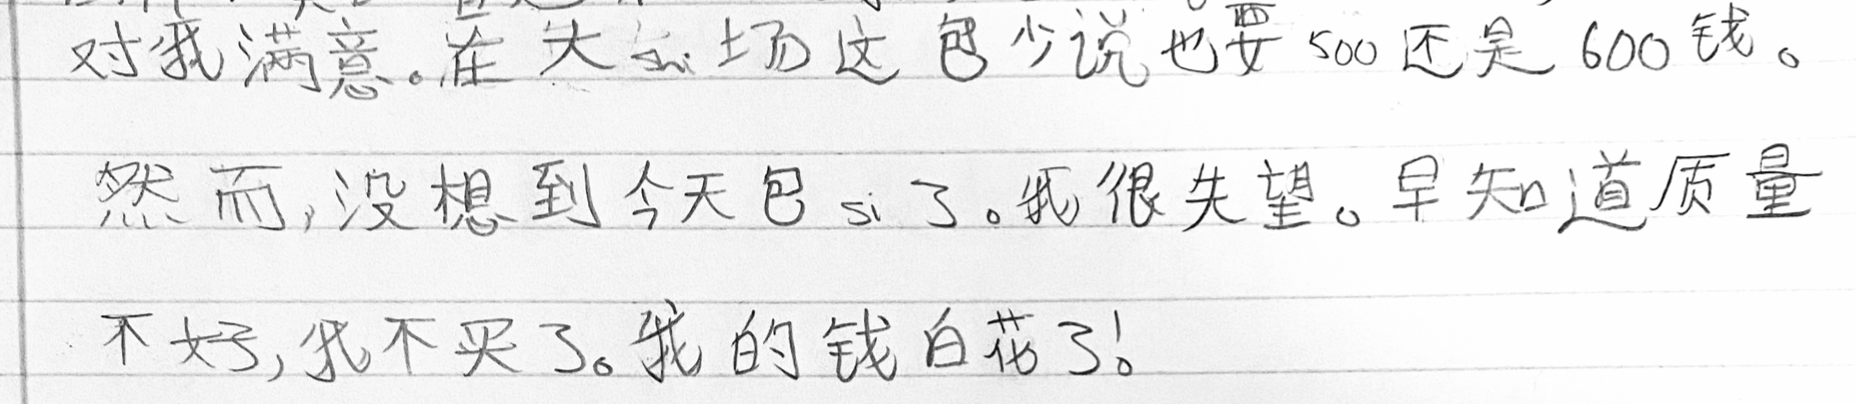 对我满意。在大 场这包少说也要500还是600钱。
然而,没想到今天包si了。我很失望。早知道质量
不好,我不买了。我的钱白花了!